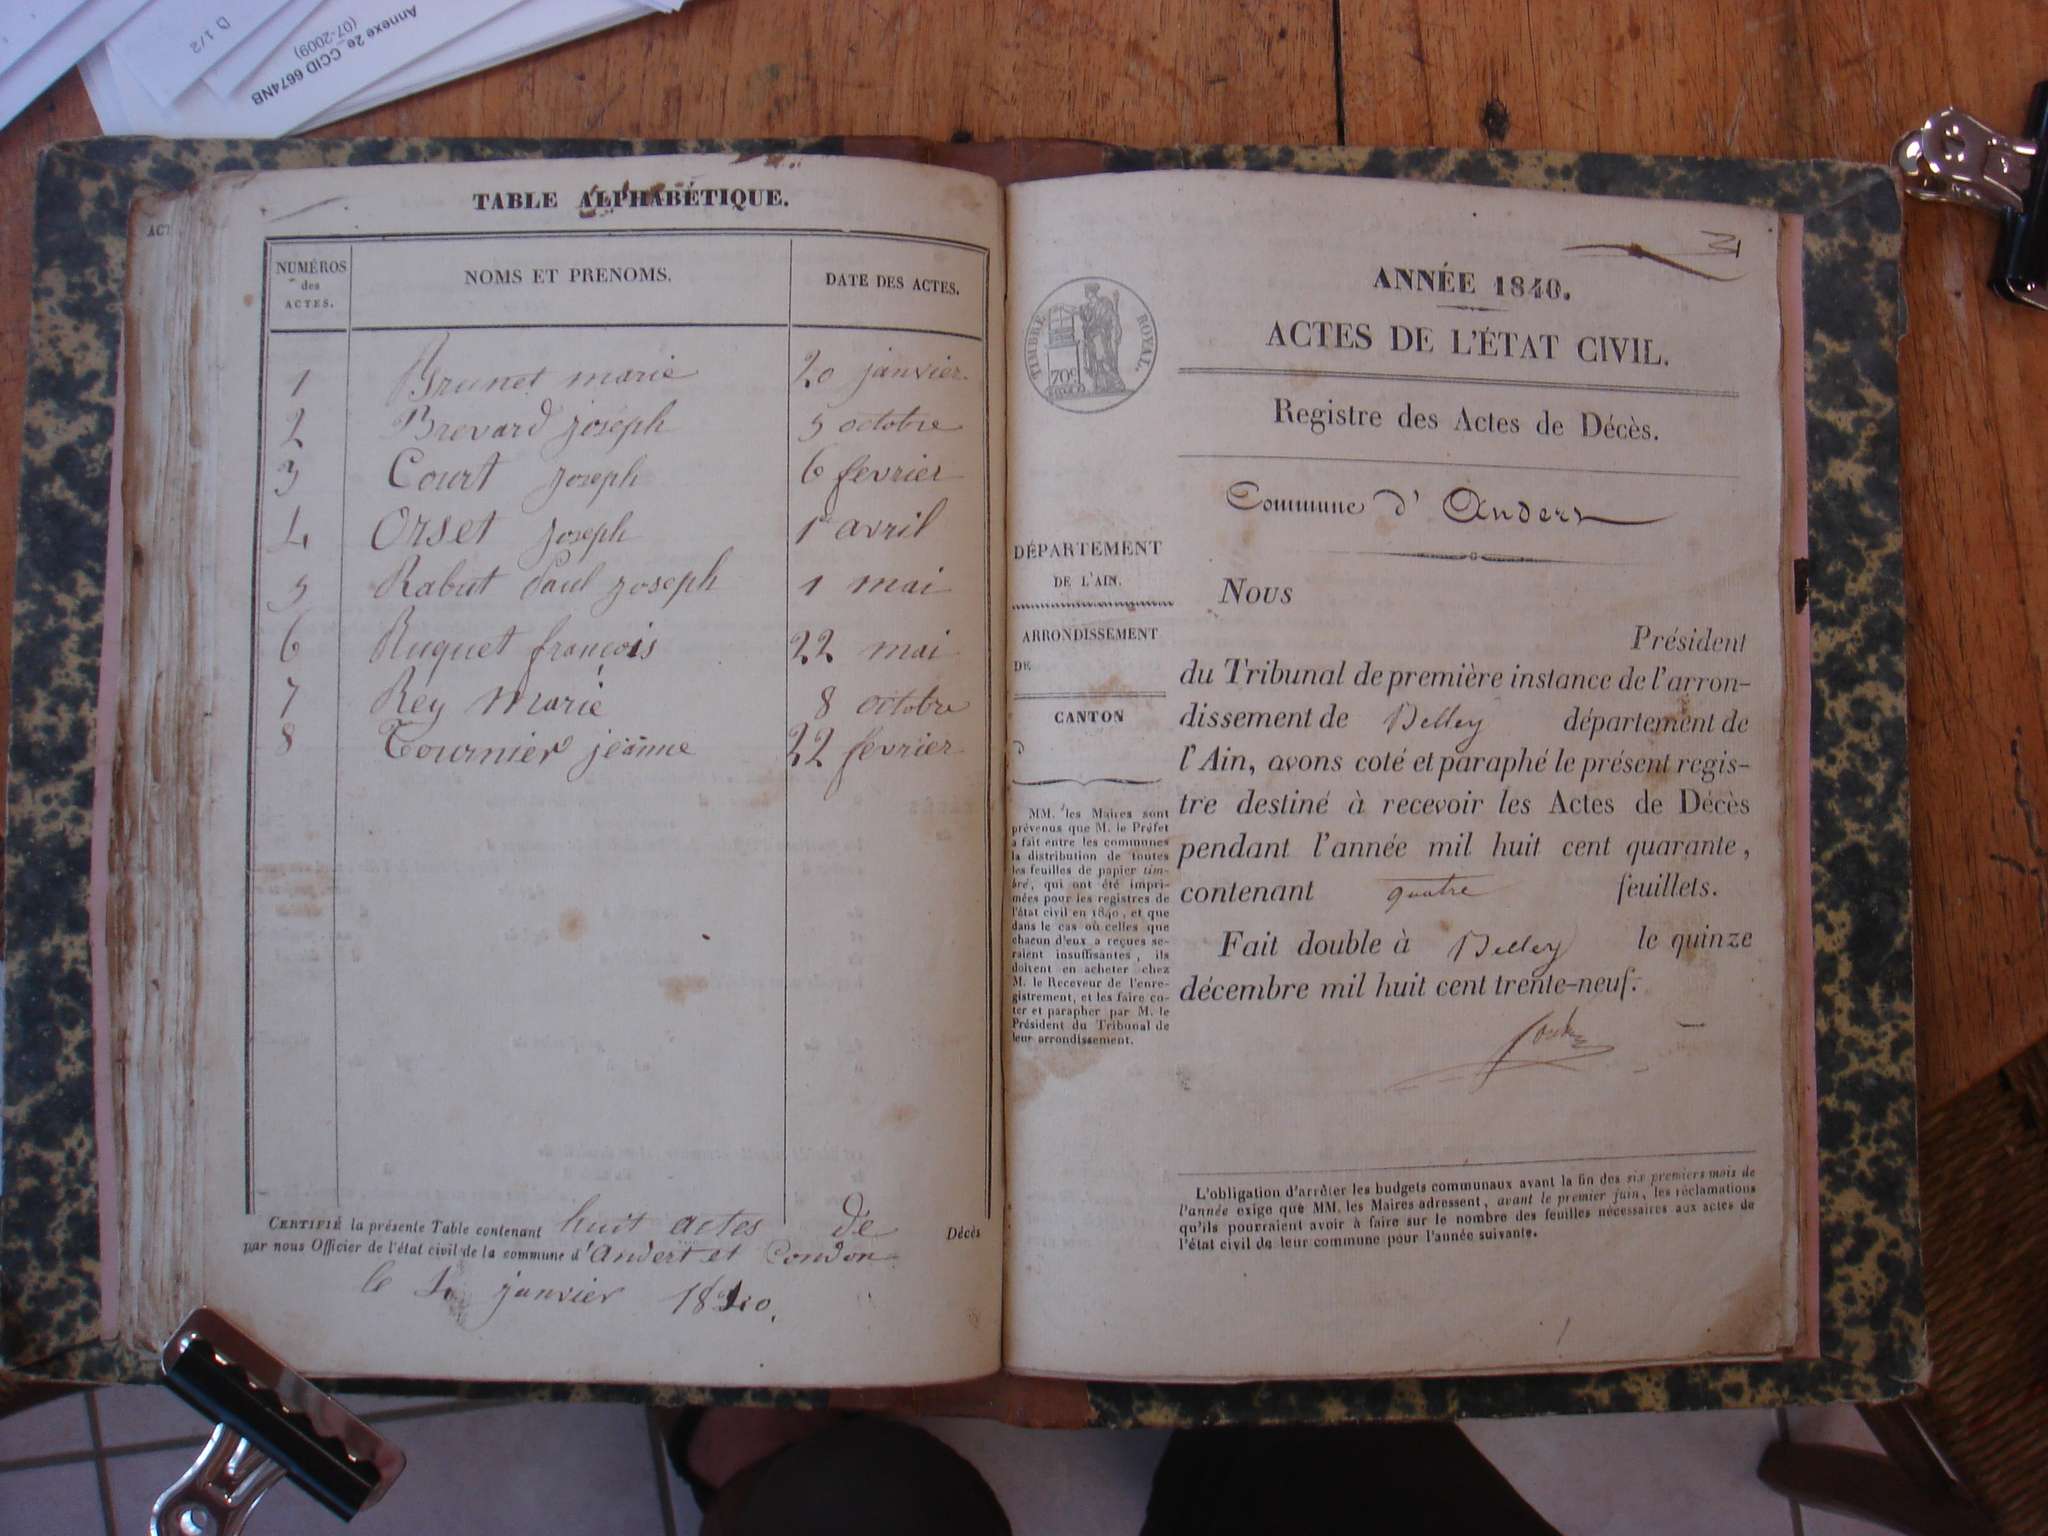 Annexe 2e_CCID 6674NB
(07-2009)
D 1/2
ACT
TABLE ALPHABÉTIQUE.
NUMÉROS des ACTES. NOMS ET PRENOMS. DATE DES ACTES.
1 Brunet marie 20 janvier
2 Brevard joseph 5 octobre
3 Court joseph 6 fevrier
4 Orset joseph 1er avril
5 Rabut Paul joseph 1 mai
6 Ruquet françois 22 mai
7 Rey marie 8 octobre
8 Tournier jeanne 22 fevrier
CERTIFIÉ la présente Table contenant huit actes de Décès
par nous Officier de l'état civil de la commune d'Andert et Condon
le 4 janvier 1840.
TIMBRE ROYAL.
70c
ANNÉE 1840.
ACTES DE L'ÉTAT CIVIL.
Registre des Actes de Décès.
Commune d'Andert
DÉPARTEMENT
DE L'AIN.
ARRONDISSEMENT
DE
CANTON
d
MM. les Maires sont
prévenus que M. le Préfet
a fait entre les communes
la distribution de toutes
les feuilles de papier tim-
bré, qui ont été impri-
mées pour les registres de
l'état civil en 1840, et que
dans le cas où celles que
chacun d'eux a reçues se-
raient insuffisantes, ils
doivent en acheter chez
M. le Receveur de l'enre-
gistrement, et les faire co-
ter et parapher par M. le
Président du Tribunal de
leur arrondissement.
Nous
Président
du Tribunal de première instance de l'arron-
dissement de Belley département de
l'Ain, avons coté et paraphé le présent regis-
tre destiné à recevoir les Actes de Décès
pendant l'année mil huit cent quarante,
contenant quatre feuillets.
Fait double à Belley le quinze
décembre mil huit cent trente-neuf.
L'obligation d'arrêter les budgets communaux avant la fin des six premiers mois de
l'année exige que MM. les Maires adressent, avant le premier juin, les réclamations
qu'ils pourraient avoir à faire sur le nombre des feuilles nécessaires aux actes de
l'état civil de leur commune pour l'année suivante.